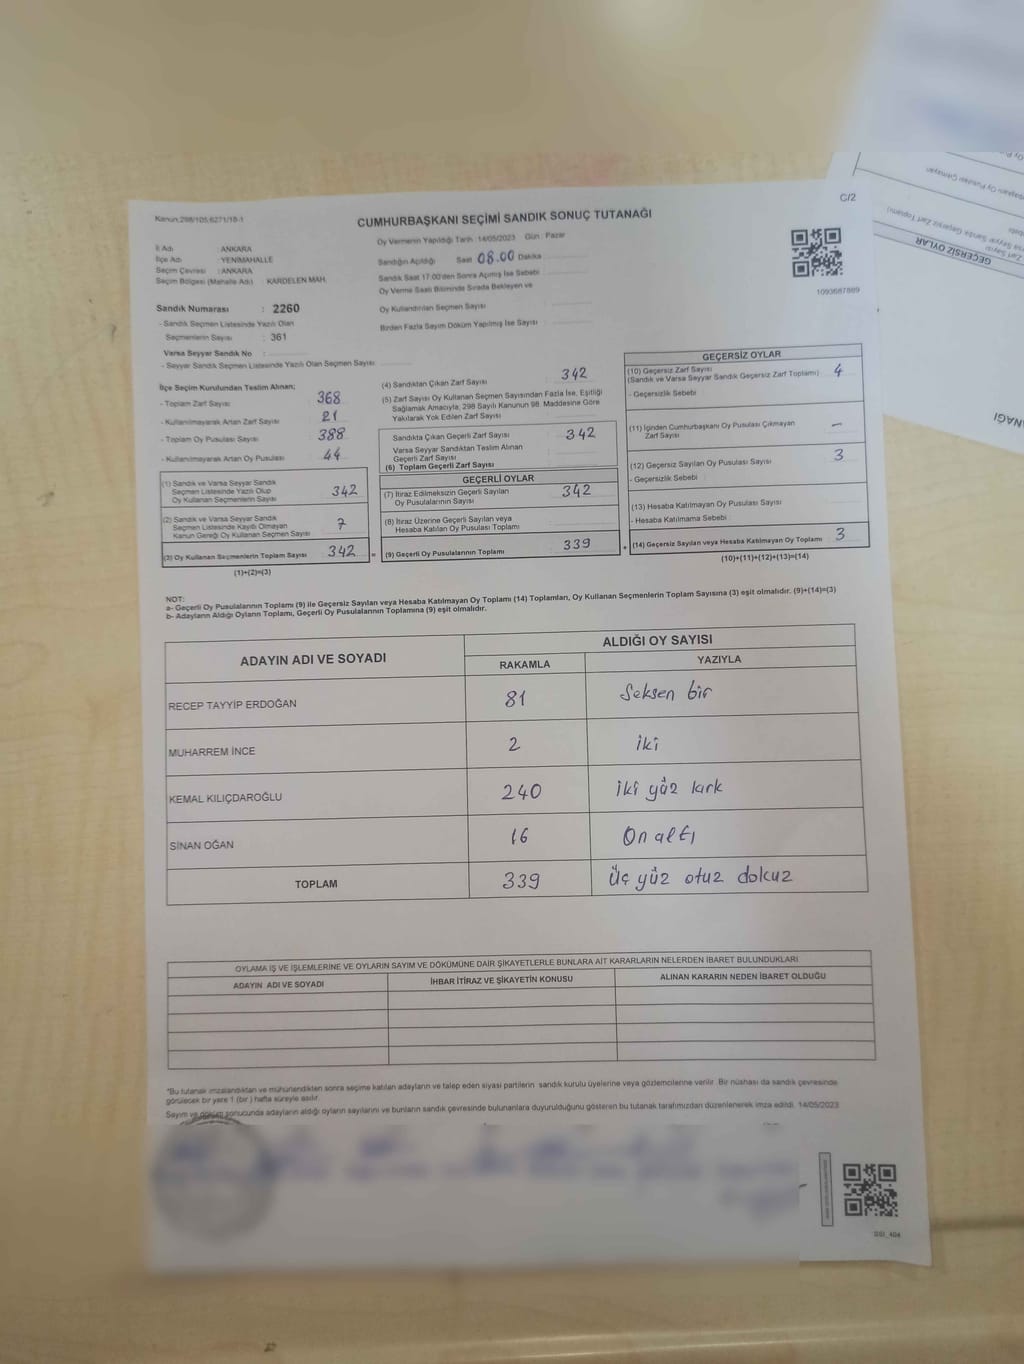 Kanun:298/105;6271/18-1
C/2
CUMHURBAŞKANI SEÇİMİ SANDIK SONUÇ TUTANAĞI
İl Adı : ANKARA
İlçe Adı : YENİMAHALLE
Seçim Çevresi : ANKARA
Seçim Bölgesi (Mahalle Adı) KARDELEN MAH.
Sandık Numarası : 2260
- Sandık Seçmen Listesinde Yazılı Olan
Seçmenlerin Sayısı : 361
Varsa Seyyar Sandık No :
- Seyyar Sandık Seçmen Listesinde Yazılı Olan Seçmen Sayısı
Oy Vermenin Yapıldığı Tarih : 14/05/2023 Gün : Pazar
Sandığın Açıldığı Saat 08.00 Dakika
Sandık Saat 17:00'den Sonra Açılmış İse Sebebi
Oy Verme Saati Bitiminde Sırada Bekleyen ve
Oy Kullandırılan Seçmen Sayısı
Birden Fazla Sayım Döküm Yapılmış İse Sayısı
1093687889
İlçe Seçim Kurulundan Teslim Alınan;
- Toplam Zarf Sayısı 368
- Kullanılmayarak Artan Zarf Sayısı 21
- Toplam Oy Pusulası Sayısı 388
- Kullanılmayarak Artan Oy Pusulası 44
(1) Sandık ve Varsa Seyyar Sandık
Seçmen Listesinde Yazılı Olup
Oy Kullanan Seçmenlerin Sayısı 342
(2) Sandık ve Varsa Seyyar Sandık
Seçmen Listesinde Kayıtlı Olmayan
Kanun Gereği Oy Kullanan Seçmen Sayısı 7
(3) Oy Kullanan Seçmenlerin Toplam Sayısı 342 =
(1)+(2)=(3)
(4) Sandıktan Çıkan Zarf Sayısı 342
(5) Zarf Sayısı Oy Kullanan Seçmen Sayısından Fazla İse, Eşitliği
Sağlamak Amacıyla, 298 Sayılı Kanunun 98. Maddesine Göre
Yakılarak Yok Edilen Zarf Sayısı
Sandıkta Çıkan Geçerli Zarf Sayısı 342
Varsa Seyyar Sandıktan Teslim Alınan
Geçerli Zarf Sayısı
(6) Toplam Geçerli Zarf Sayısı
GEÇERLİ OYLAR
(7) İtiraz Edilmeksizin Geçerli Sayılan
Oy Pusulalarının Sayısı 342
(8) İtiraz Üzerine Geçerli Sayılan veya
Hesaba Katılan Oy Pusulası Toplamı
(9) Geçerli Oy Pusulalarının Toplamı 339 +
GEÇERSİZ OYLAR
(10) Geçersiz Zarf Sayısı
(Sandık ve Varsa Seyyar Sandık Geçersiz Zarf Toplamı) 4
- Geçersizlik Sebebi
(11) İçinden Cumhurbaşkanı Oy Pusulası Çıkmayan
Zarf Sayısı –
(12) Geçersiz Sayılan Oy Pusulası Sayısı 3
- Geçersizlik Sebebi
(13) Hesaba Katılmayan Oy Pusulası Sayısı
- Hesaba Katılmama Sebebi
(14) Geçersiz Sayılan veya Hesaba Katılmayan Oy Toplamı 3
(10)+(11)+(12)+(13)=(14)
NOT:
a- Geçerli Oy Pusulalarının Toplamı (9) ile Geçersiz Sayılan veya Hesaba Katılmayan Oy Toplamı (14) Toplamları, Oy Kullanan Seçmenlerin Toplam Sayısına (3) eşit olmalıdır. (9)+(14)=(3)
b- Adayların Aldığı Oyların Toplamı, Geçerli Oy Pusulalarının Toplamına (9) eşit olmalıdır.
ADAYIN ADI VE SOYADI
ALDIĞI OY SAYISI
RAKAMLA YAZIYLA
RECEP TAYYİP ERDOĞAN 81 Seksen bir
MUHARREM İNCE 2 iki
KEMAL KILIÇDAROĞLU 240 iki yüz kırk
SİNAN OĞAN 16 On altı
TOPLAM 339 Üç yüz otuz dokuz
OYLAMA İŞ VE İŞLEMLERİNE VE OYLARIN SAYIM VE DÖKÜMÜNE DAİR ŞİKAYETLERLE BUNLARA AİT KARARLARIN NELERDEN İBARET BULUNDUKLARI
ADAYIN ADI VE SOYADI İHBAR İTİRAZ VE ŞİKAYETİN KONUSU ALINAN KARARIN NEDEN İBARET OLDUĞU
*Bu tutanak imzalandıktan ve mühürlendikten sonra seçime katılan adayların ve talep eden siyasi partilerin sandık kurulu üyelerine veya gözlemcilerine verilir. Bir nüshası da sandık çevresinde
görülecek bir yere 1 (bir) hafta süreyle asılır.
Sayım ve döküm sonucunda adayların aldığı oyların sayılarını ve bunların sandık çevresinde bulunanlara duyurulduğunu gösteren bu tutanak tarafımızdan düzenlenerek imza edildi. 14/05/2023
GEÇERSİZ OYLAR